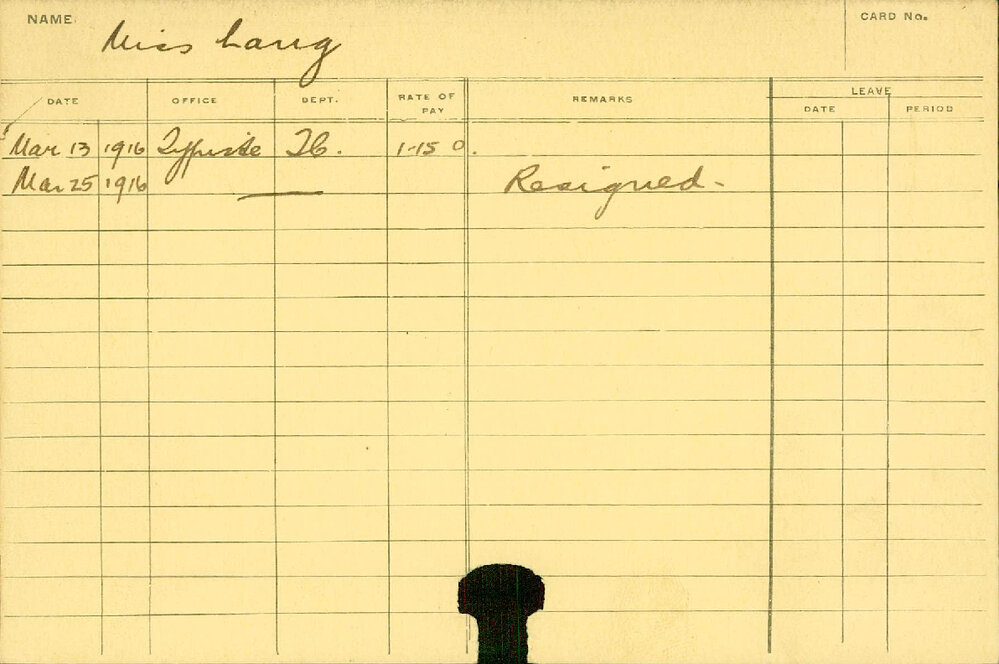 NAME Miss Lang CARD No.
DATE OFFICE DEPT. RATE OF PAY REMARKS LEAVE
DATE PERIOD
Mar 13 1916 Typiste 1-15 0.
Mar 25 1916 — Resigned-